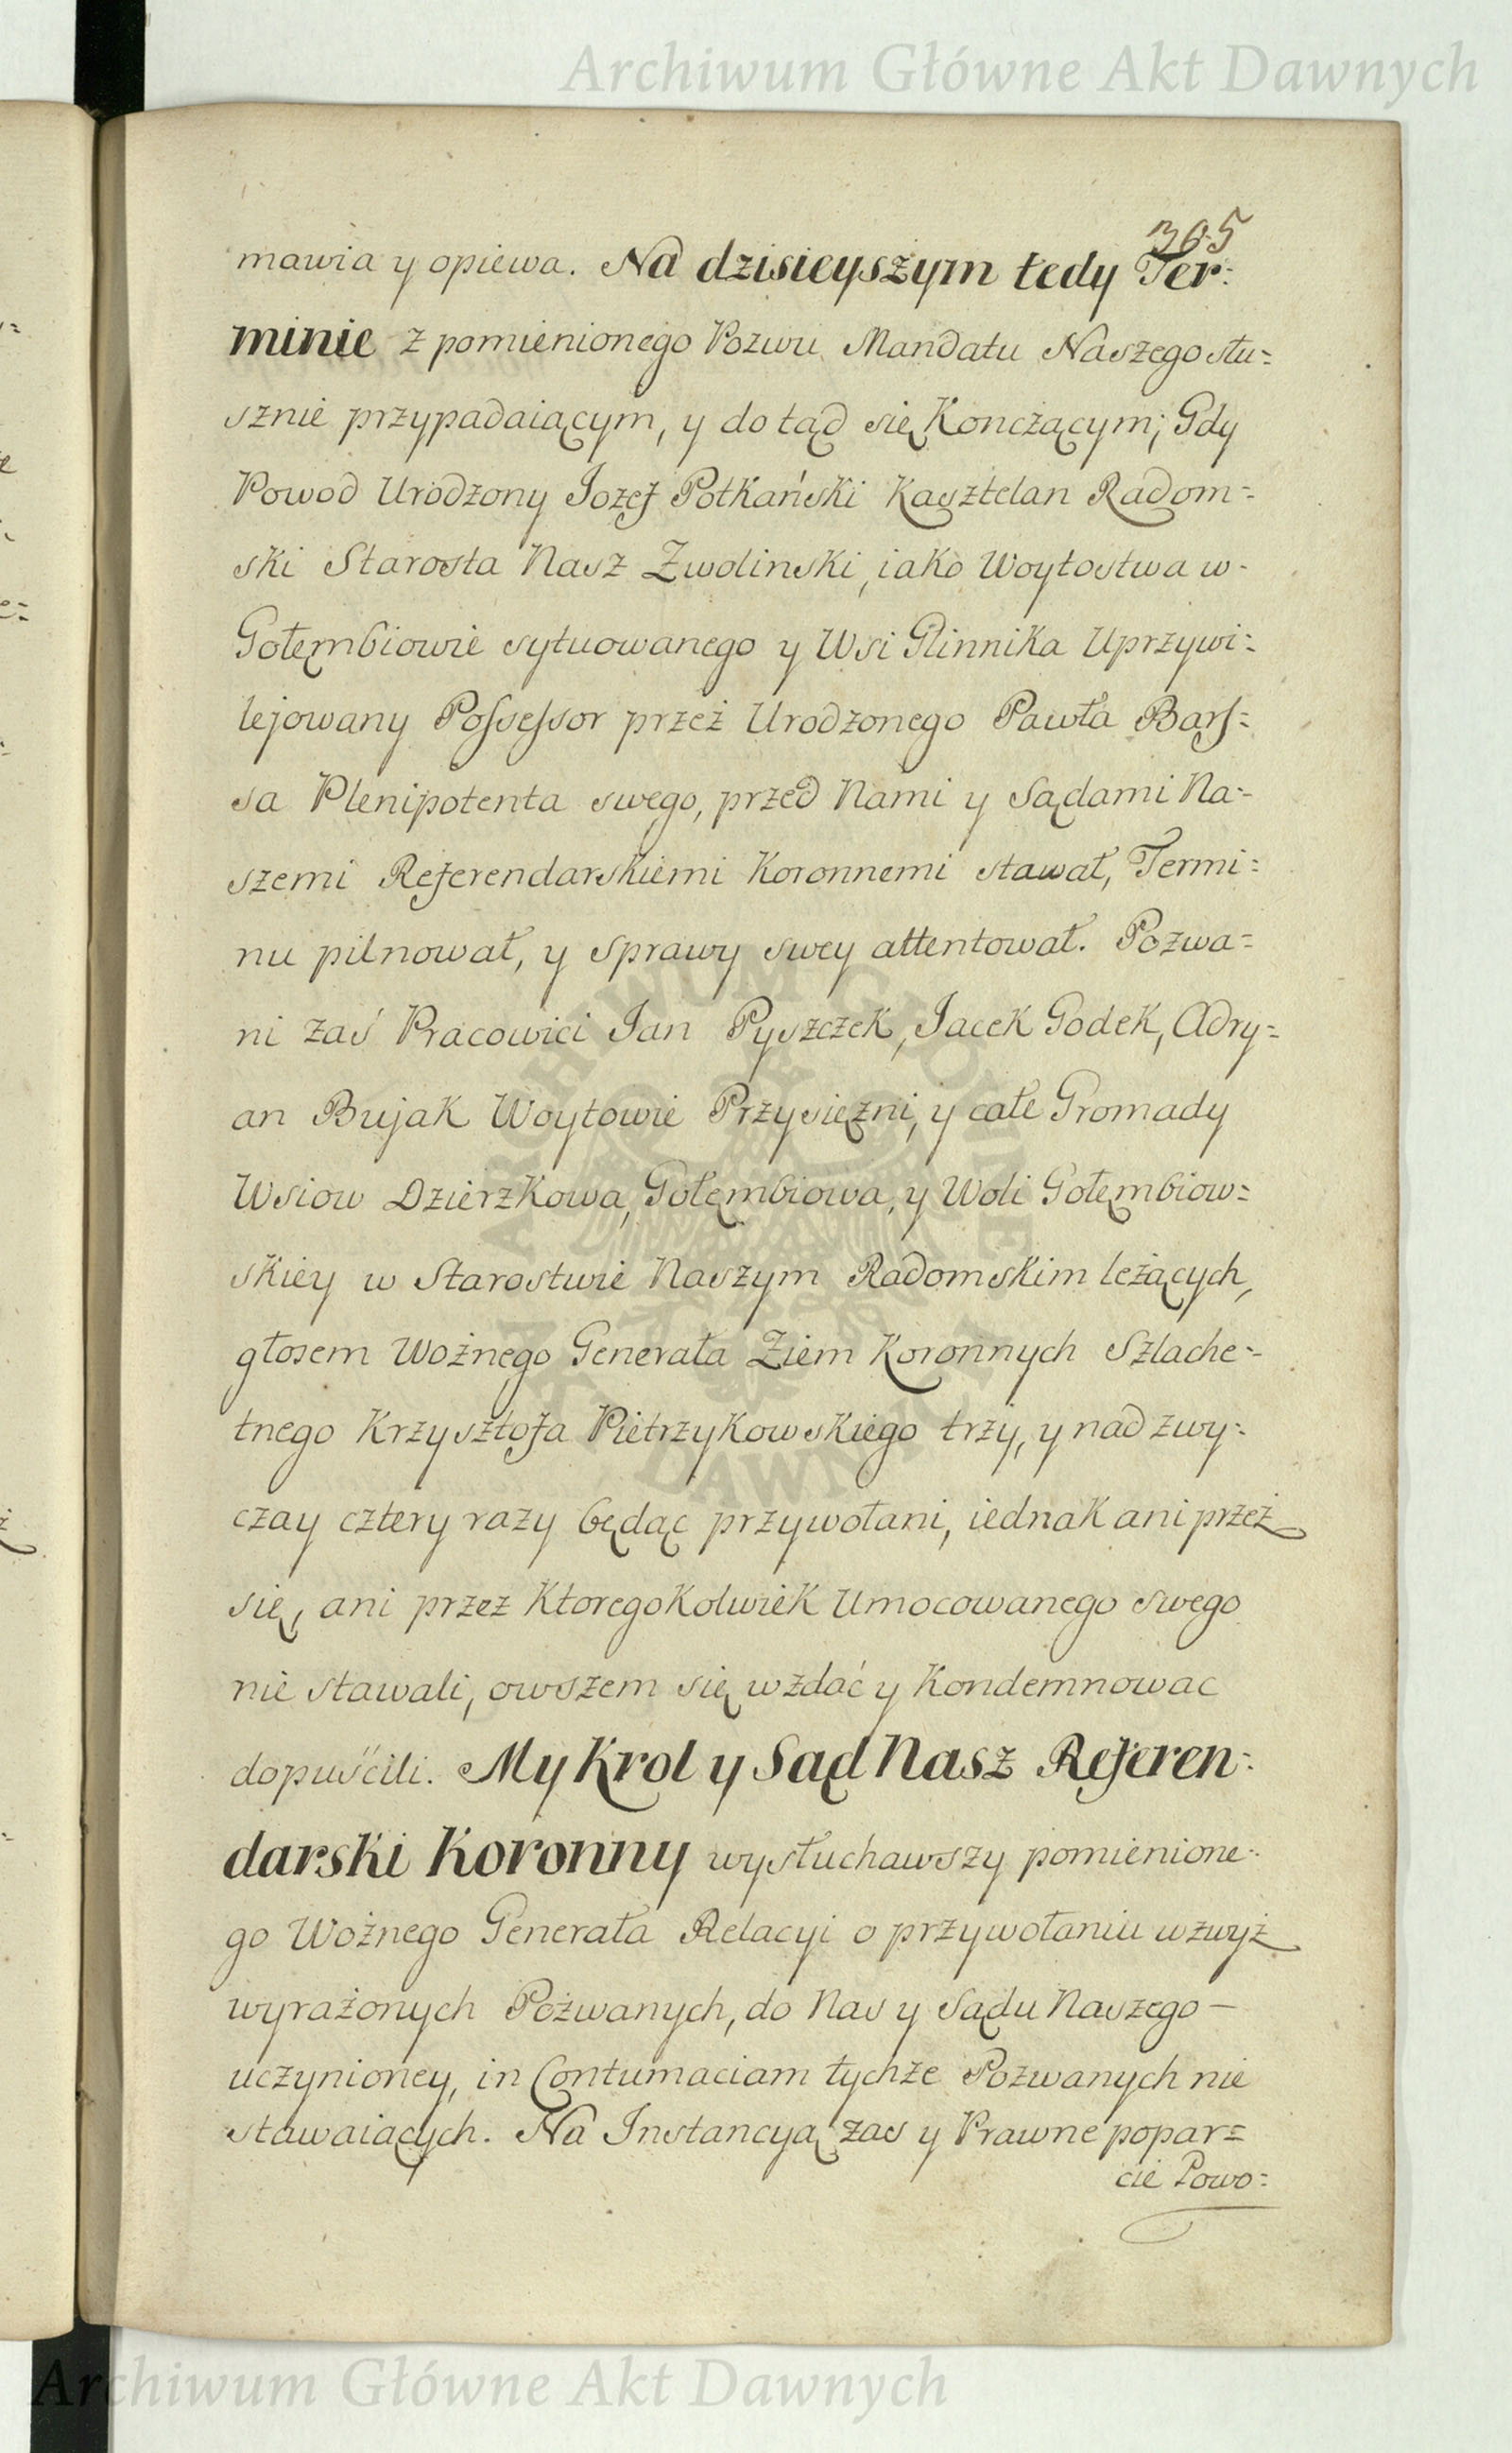 Archiwum Główne Akt Dawnych
305
mawia y opiewa. Na dzisieyszym tedy Ter:
minie z pomienionego Pozwu Mandatu Naszego słu=
sznie przypadaiącym, y do tąd się Kończącym; Gdy
Powod Urodzony Jozef Potkański Kasztelan Radom=
ski Starosta Nasz Zwolinski, iako Woytostwa w-
Gołęmbiowie sytuowanego y Wsi Glinnika Uprzywi=
lejowany Possessor przez Urodzonego Pawła Bars=
sa Plenipotenta swego, przed Nami y Sądami Na=
szemi Referendarskiemi Koronnemi stawał, Termi=
nu pilnował, y sprawy swey attentował. Pozwa=
ni zaś Pracowici Jan Pyszczek, Jacek Godek, Adry=
an Bujak Woytowie Przysięzni, y całe Gromady
Wsiow Dzierzkowa, Gołęmbiowa, y Woli Gołęmbiow=
skiey w Starostwie Naszym Radomskim leżących,
głosem Woźnego Generała Ziem Koronnych Szlache=
tnego Krzysztofa Pietrzykowskiego trzy, y nad zwy=
czay cztery razy będąc przywołani, iednak ani przez
się, ani przez Ktoregokolwiek Umocowanego swego
nie stawali, owszem się wzdać y Kondemnowac
dopuścili. My Krol y Sąd Nasz Referen=
darski Koronny wysłuchawszy pomienione=
go Woźnego Generała Relacyi o przywołaniu wzwyż
wyrażonych Pozwanych, do Nas y Sądu Naszego —
uczynioney, in Contumaciam tychże Pozwanych nie
stawaiących. Na Instancyą zas y Prawne popar=
cie Powo=
ARCHIWUM GŁÓWNE AKT DAWNYCH
Archiwum Główne Akt Dawnych